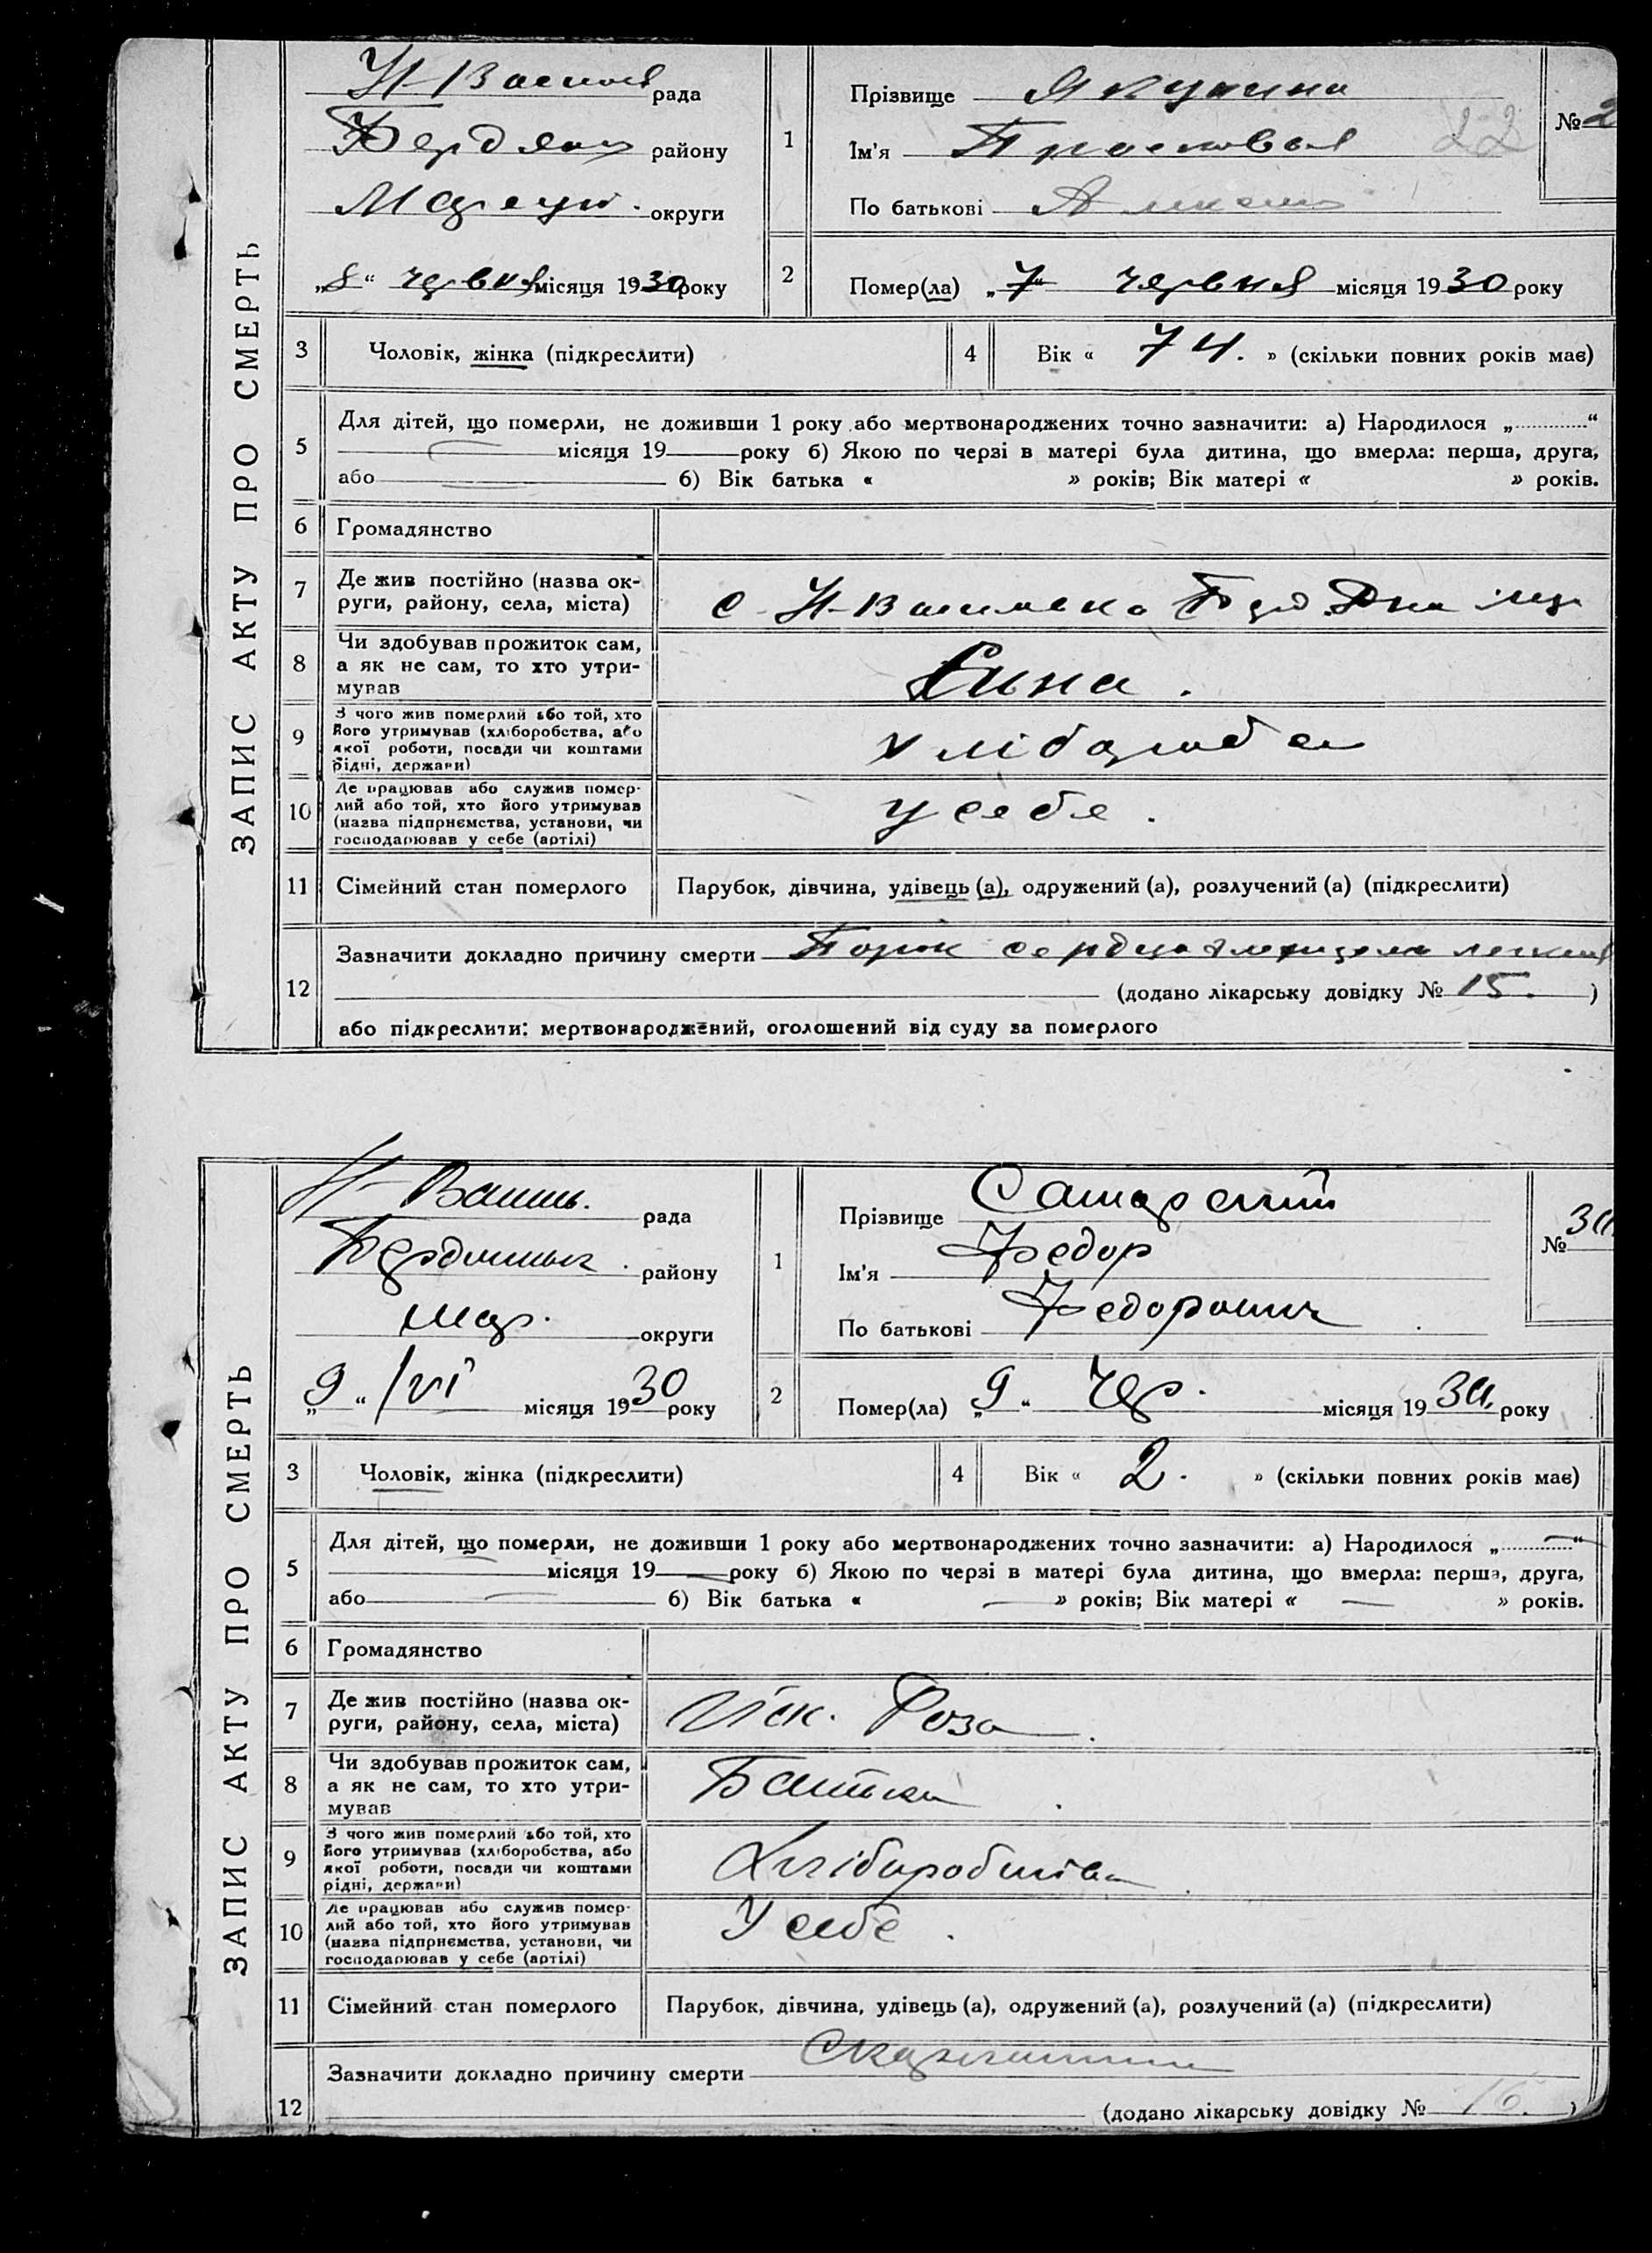 ЗАПИС АКТУ ПРО СМЕРТЬ
рада
району
округи
„8“ червня місяця 1930 року
1
Прізвище Якунина
Ім'я Прасковья 22
По батькові
№ 2
2
Помер(ла) „7“ червня місяця 1930 року
3 Чоловік, жінка (підкреслити)
4 Вік « 74. » (скільки повних років має)
5 Для дітей, що померли, не доживши 1 року або мертвонароджених точно зазначити: а) Народилося „ “
місяця 19 року б) Якою по черзі в матері була дитина, що вмерла: перша, друга,
або б) Вік батька « » років; Вік матері « » років.
6 Громадянство
7 Де жив постійно (назва ок-
руги, району, села, міста)
с. Н-Василевка
8 Чи здобував прожиток сам,
а як не сам, то хто утри-
мував
Сина.
9 З чого жив померлий або той, хто
його утримував (хліборобства, або
якої роботи, посади чи коштами
рідні, держави)
10 Де працював або служив помер-
лий або той, хто його утримував
(назва підприємства, установи, чи
господарював у себе (артілі)
у себе.
11 Сімейний стан померлого Парубок, дівчина, удівець (а), одружений (а), розлучений (а) (підкреслити)
12 Зазначити докладно причину смерти Порок сердца легких
(додано лікарську довідку № 15. )
або підкреслити: мертвонароджений, оголошений від суду за померлого
ЗАПИС АКТУ ПРО СМЕРТЬ
рада
району
Мар. округи
„9“ /VI місяця 1930 року
1
Прізвище
Ім'я Федор
По батькові Федорович
№ 30
2
Помер(ла) „9“ Чер. місяця 1930 року
3 Чоловік, жінка (підкреслити)
4 Вік « 2. » (скільки повних років має)
5 Для дітей, що померли, не доживши 1 року або мертвонароджених точно зазначити: а) Народилося „ “
місяця 19 року б) Якою по черзі в матері була дитина, що вмерла: перша, друга,
або б) Вік батька « » років; Вік матері « » років.
6 Громадянство
7 Де жив постійно (назва ок-
руги, району, села, міста)
Роза
8 Чи здобував прожиток сам,
а як не сам, то хто утри-
мував
Батько.
9 З чого жив померлий або той, хто
його утримував (хліборобства, або
якої роботи, посади чи коштами
рідні, держави)
Хліборобства
10 Де працював або служив помер-
лий або той, хто його утримував
(назва підприємства, установи, чи
господарював у себе (артілі)
У себе.
11 Сімейний стан померлого Парубок, дівчина, удівець (а), одружений (а), розлучений (а) (підкреслити)
12 Зазначити докладно причину смерти Скарлатина
(додано лікарську довідку № 16. )